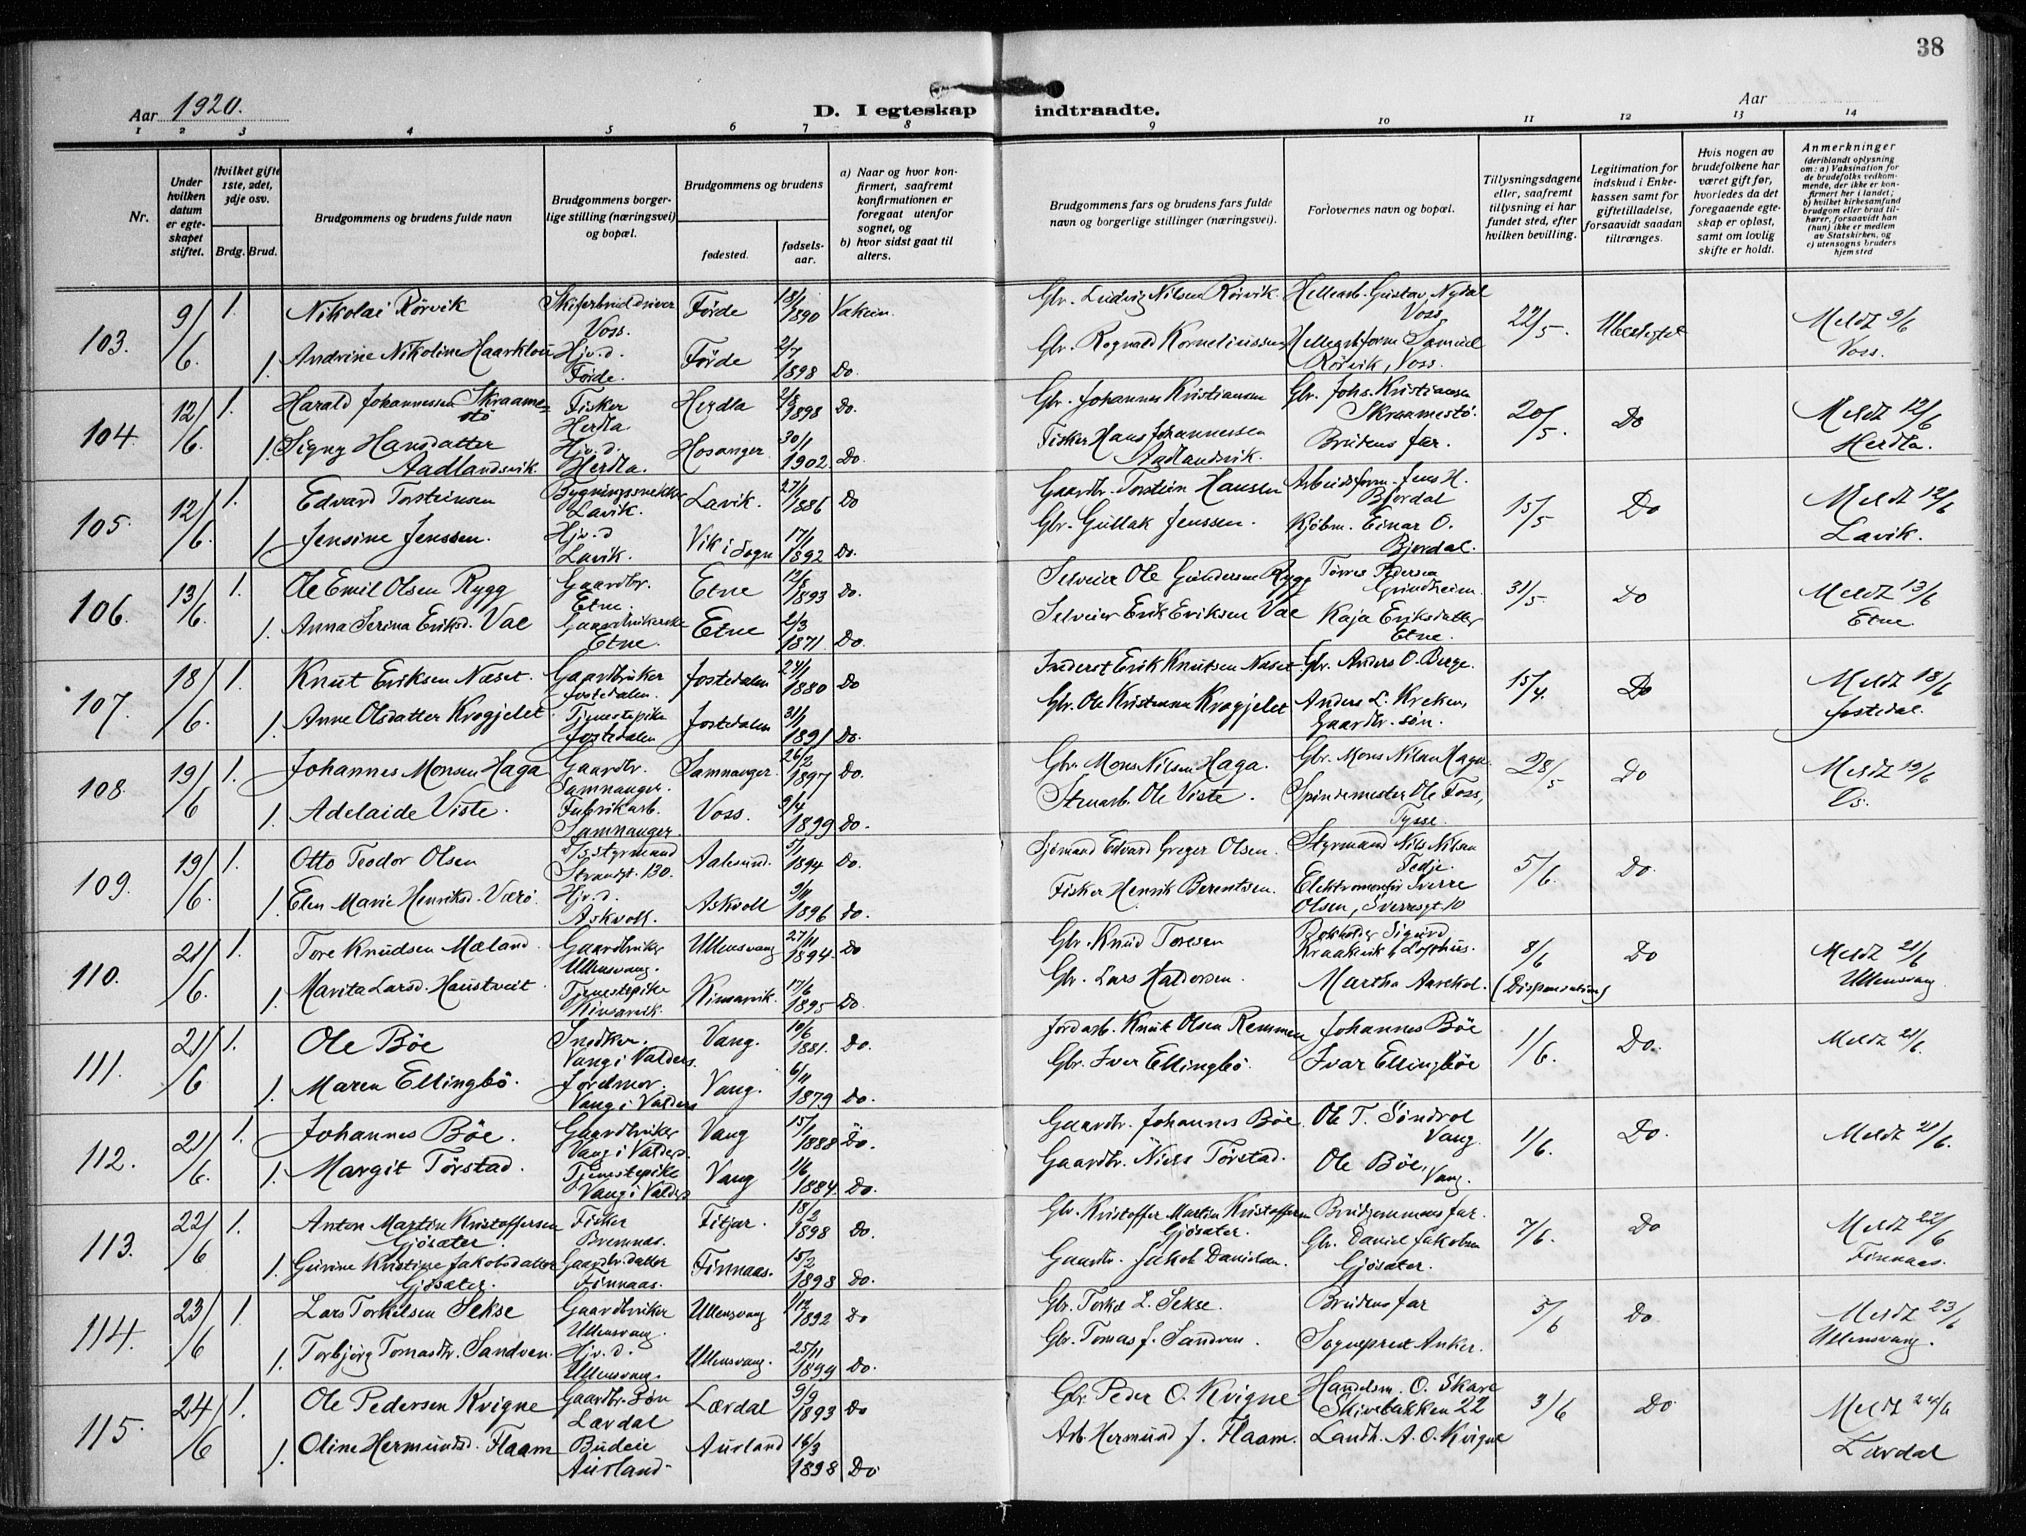 38
Aar 1920.
D. I egteskap indtraadte.
Aar
1 2 3 4 5 6 7 8 9 10 11 12 13 14
Nr.
Under hvilken datum er egteskapet stiftet.
Hvilket gifte 1ste, 2det, 3dje osv.
Brdg. Brud.
Brudgommens og brudens fulde navn
Brudgommens borgerlige stilling (næringsvei) og bopæl.
Brudgommens og brudens
fødested.
fødselsaar.
a) Naar og hvor konfirmert, saafremt konfirmationen er foregaat utenfor sognet, og
b) hvor sidst gaat til alters.
Brudgommens fars og brudens fars fulde navn og borgerlige stillinger (næringsvei).
Forlovernes navn og bopæl.
Tillysningsdagene eller, saafremt tillysning ei har fundet sted, efter hvilken bevilling.
Legitimation for indskud i Enkekassen samt for giftetilladelse, forsaavidt saadan tiltrænges.
Hvis nogen av brudefolkene har været gift før, hvorledes da det foregaaende egteskap er opløst, samt om lovlig skifte er holdt.
Anmerkninger
(deriblandt oplysning om: a) Vaksination for de brudefolks vedkommende, der ikke er konfirmert her i landet; b) hvilket kirkesamfund brudgom eller brud tilhører, forsaavidt han (hun) ikke er medlem av Statskirken, og c) utensogns bruders hjemsted
103. 9/6 1. Nikolai Rörvik Skiferbruddriver Voss. Förde 18/1 1890 Gbr. Ludvig Nilsen Rörvik. Hellearb. Gustav Nydal Voss 22/5. Meldt 9/6 Voss.
1. Andrine Nikoline Haarklou Hjv. d. Förde. Förde 2/7 1898 Do. Gbr. Rognald Korneliussen Samuel Rörvik, Voss.
104. 12/6. 1. Harald Johannessen Skraamestö Fisker Herdla Herdla 1898 Do. Gbr. Johannes Kristiansen Gbr. Johs. Kristiansen Skraamestö. 20/5. Do Meldt 12/6 Herdla.
1. Signy Hansdatter Aadlandsvik. Hjv. d. Herdla. Hosanger 30/1 1902. Do. Fisker Hans Johannessen Aadlandsvik. Brudens far.
105. 12/6. 1. Edvard Torsteinsen Bygningssnekker Lavik. Lavik. 27/1 1886 Do Gaardbr. Torstein Hansen Arbeidsform. Jens H. Bjordal 15/5 Do Meldt 12/6 Lavik.
1. Jensine Jenssen. Hjv. d Lavik. Vik i Sogn 17/1 1892 Do. Gbr. Gullak Jenssen. Kjöbm. Einar O. Bjordal.
106. 13/6. 1. Ole Emil Olsen Rygg Gaardbr. Etne. Etne 12/8 1893 Do. Selveier Ole Gundersen Rygg Törres Pedersen Grindheim. 31/5. Do Meldt 13/6 Etne.
1. Anna Serina Eriksd. Vae Etne. Etne 2/3 1871. Do. Selveier Erik Eriksen Vae Kaja Eriksdatter Etne.
107. 18/6. 1. Knut Eriksen Næset. Gaardbruker Jostedalen. Jostedalen 24/1 1880 Do Inderst Erik Knutsen Næset. Gbr. Anders O. Berge. 15/4. Do Meldt 18/6 Jostedal.
1. Anne Olsdatter Krogjelet. Tjenestepike Jostedalen Jostedalen 31/1 1891 Do. Gbr. Ole Kristensen Krogjelet Anders L. Kreken, Gaardbr. sön.
108. 19/6 1. Johannes Monsen Haga Gaardbr. Samnanger. Samnanger. 26/2 1897 Do. Gbr. Mons Nilsen Haga. Gbr. Mons Nilsen Haga 28/5 Do Meldt 19/6 Os.
1. Adelaide Viste. Fabrikarb. Samnanger. Voss. 9/4 1899 Do. Ole Viste. Spindemester Ole Foss, Tysse.
109. 19/6. 1. Otto Teodor Olsen Styrmand Strandgt. 130. Aalesund. 5/1 1894 Do. Sjömand Edvard Greger Olsen. Styrmand Nils Nilsen Fedje. 5/6. Do.
1. Elen Marie Henriksd. Værö. Hjv. d. Askvoll. Askvoll 9/11 1896 Do. Fisker Henrik Berentsen. Elektromontör Sverre Olsen, Sverresgt 10
110. 21/6. 1. Tore Knudsen Mæland. Gaardbruker Ullensvang. Ullensvang 27/11 1894. Do Gbr. Knud Toresen Bokholder Sigurd Kraakevik, Lofthus. 8/6 Do Meldt 21/6 Ullensvang
1. Marita Larsd. Haustveit Tjenestepike Kinsarvik. Kinsarvik. 17/6 1895 Do. Gbr. Lars Haldorsen. Martha Aarekol. (Dispensation)
111. 21/6 1. Ole Böe Snedker. Vang i Valders. Vang. 10/6 1881. Do. Jordarb. Knut Olsen Remmen Johannes Böe 1/6. Do. Meldt 21/6.
1. Maren Ellingbö. Jordmor. Vang i Valders Vang. 6/11 1879 Do. Gbr. Iver Ellingbö. Ivar Ellingböe
112. 21/6. 1. Johannes Böe. Gaardbruker Vang i Valders. Vang 15/1 1888 Do. Gaardbr. Johannes Böe. Ole T. Söndrol Vang. 1/6. Do. Meldt 21/6.
1. Margit Törstad. Tjenestepike Vang i Valders Vang 1/6 1884. Do. Gaardbr. Niels Törstad. Ole Böe, Vang.
113. 22/6 1. Anton Martin Kristoffersen Gjösæter. Fisker Bremnæs. Fitjar. 18/2 1898 Do. Gbr. Kristoffer Martin Kristoffersen Gjösæter. Brudgommens far. 7/6. Do Meldt 22/6 Finnaas.
1. Gurine Kristine Jakobsdatter Gjösæter. Gaardbr. datter Finnaas. Finnaas. 15/2 1898 Do. Gaardbr. Jakob Danielsen. Gbr. Daniel Jakobsen Gjösæter.
114. 23/6 1. Lars Torkelsen Sekse Gaardbruker Ullensvang. Ullensvang 1/12 1892 Do Gbr. Torkel L. Sekse. Brudens far 5/6 Do Meldt 23/6 Ullensvang.
1. Torbjörg Tomasdtr. Sandven. Hjv. d. Ullensvang Ullensvang. 25/11 1899 Do. Gbr. Tomas J. Sandven. Sogneprest Anker.
115. 24/6 1. Ole Pedersen Kvigne Gaardbr. sön Lærdal Lærdal 9/9 1893 Do Gbr. Peder O. Kvigne Handelsm. O. Skare Skivebakken 22 3/6 Do Meldt 24/6 Lærdal
1. Oline Hermundsd. Flaam Budeie Aurland Aurland 16/3 1898 Do Arb. Hermund J. Flaam. Landh. A. O. Kvigne